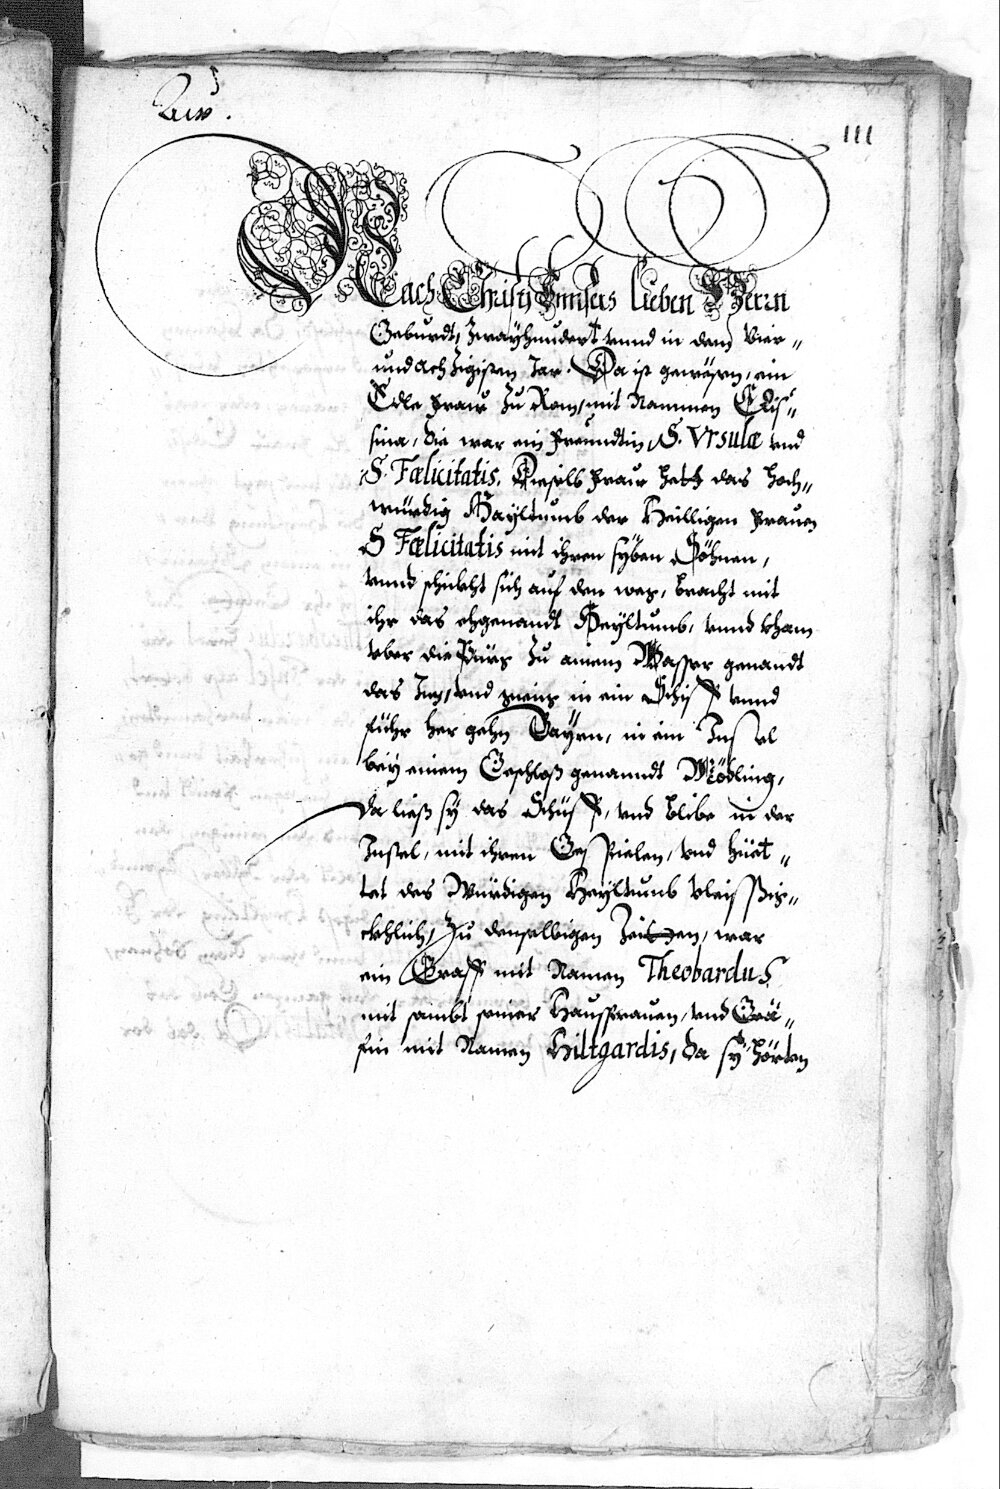 111
Nach Christj Unnsers lieben Herrn
Geburdt, Zwayhundert vnnd in dem Vier-
undachzigisten Jar. Da ist gewesen, ein
Edle Fraw zu Rom, mit Nammen
sina, die war ein Freundtin, S. Vrsulæ vnd
S. Fœlicitatis. Dieselb Fraw hett das hoch-
würdig Hayltumb der Heilligen Frauen
S Fœlicitatis mit ihren syben Söhnen,
vnnd schickht sich auf den weg, bracht mit
ihr das ehgenandt Heyltumb, vnnd kham
vber die zu ainem Wasser genandt
das Jn, vnd gieng in ein Schiff vnnd
führ her gehn Bayrn, in ein Insel
bey einem Geschloß genanndt Mödling,
da ließ sy das Schüff, vnd blibe in der
Insel, mit ihren Gespielen, vnd hüet-
tet des Würdigen Heyltumb vleissig-
ckhlich, Zu denselbigen Zeitten, war
ein Graff mit Namen Theobardus
mit sambt seiner Hausfrauen, vnd Grä-
fin mit Namen Hiltgardis, da sy hörten